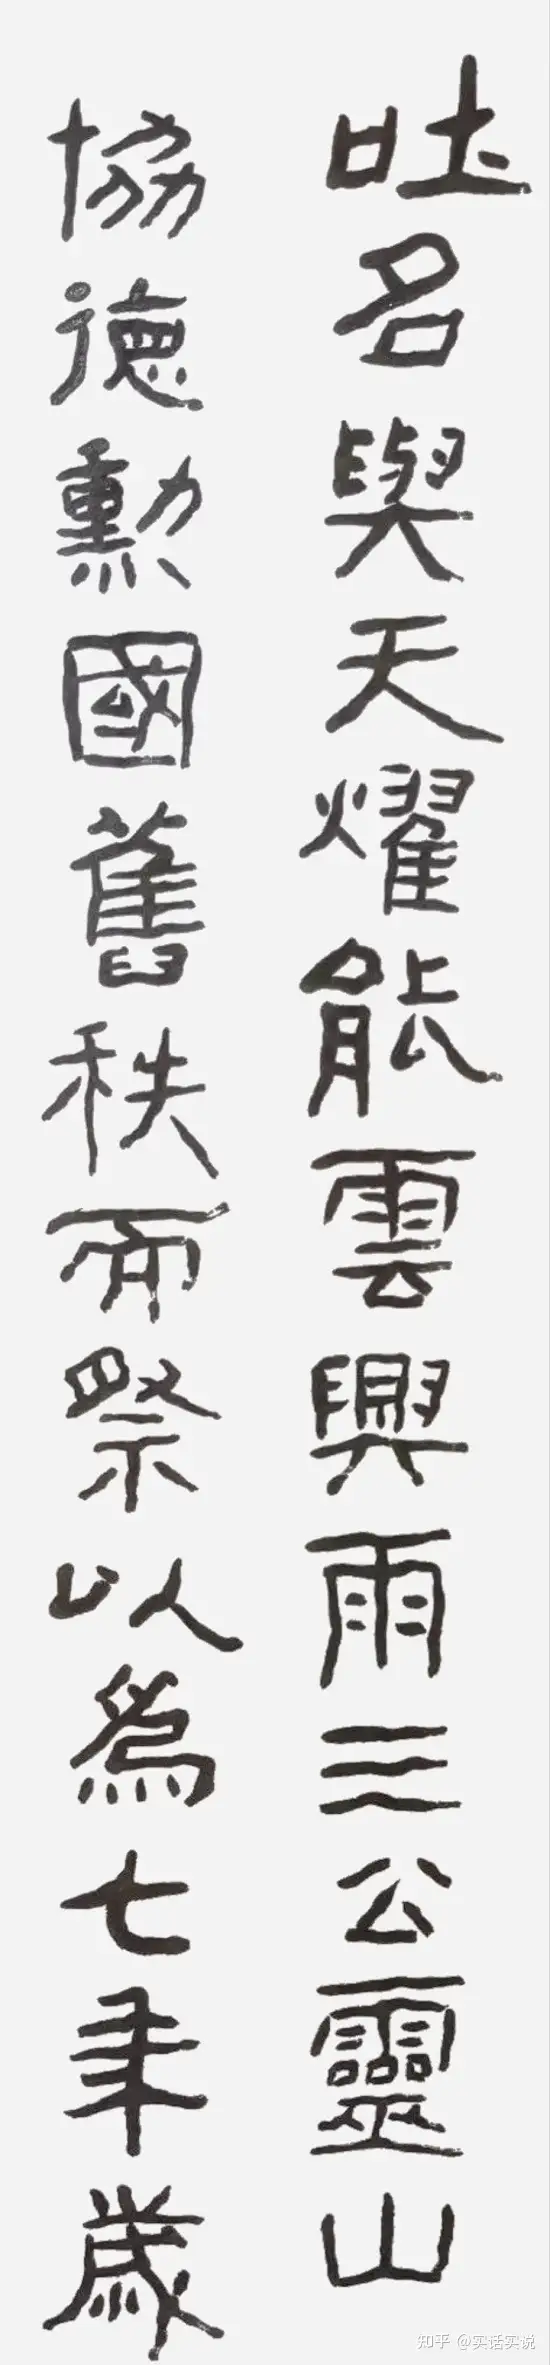 吐名與天耀能雲興雨三公靈山
協德勳國舊秩而祭以爲七年歲
知乎 @实话实说